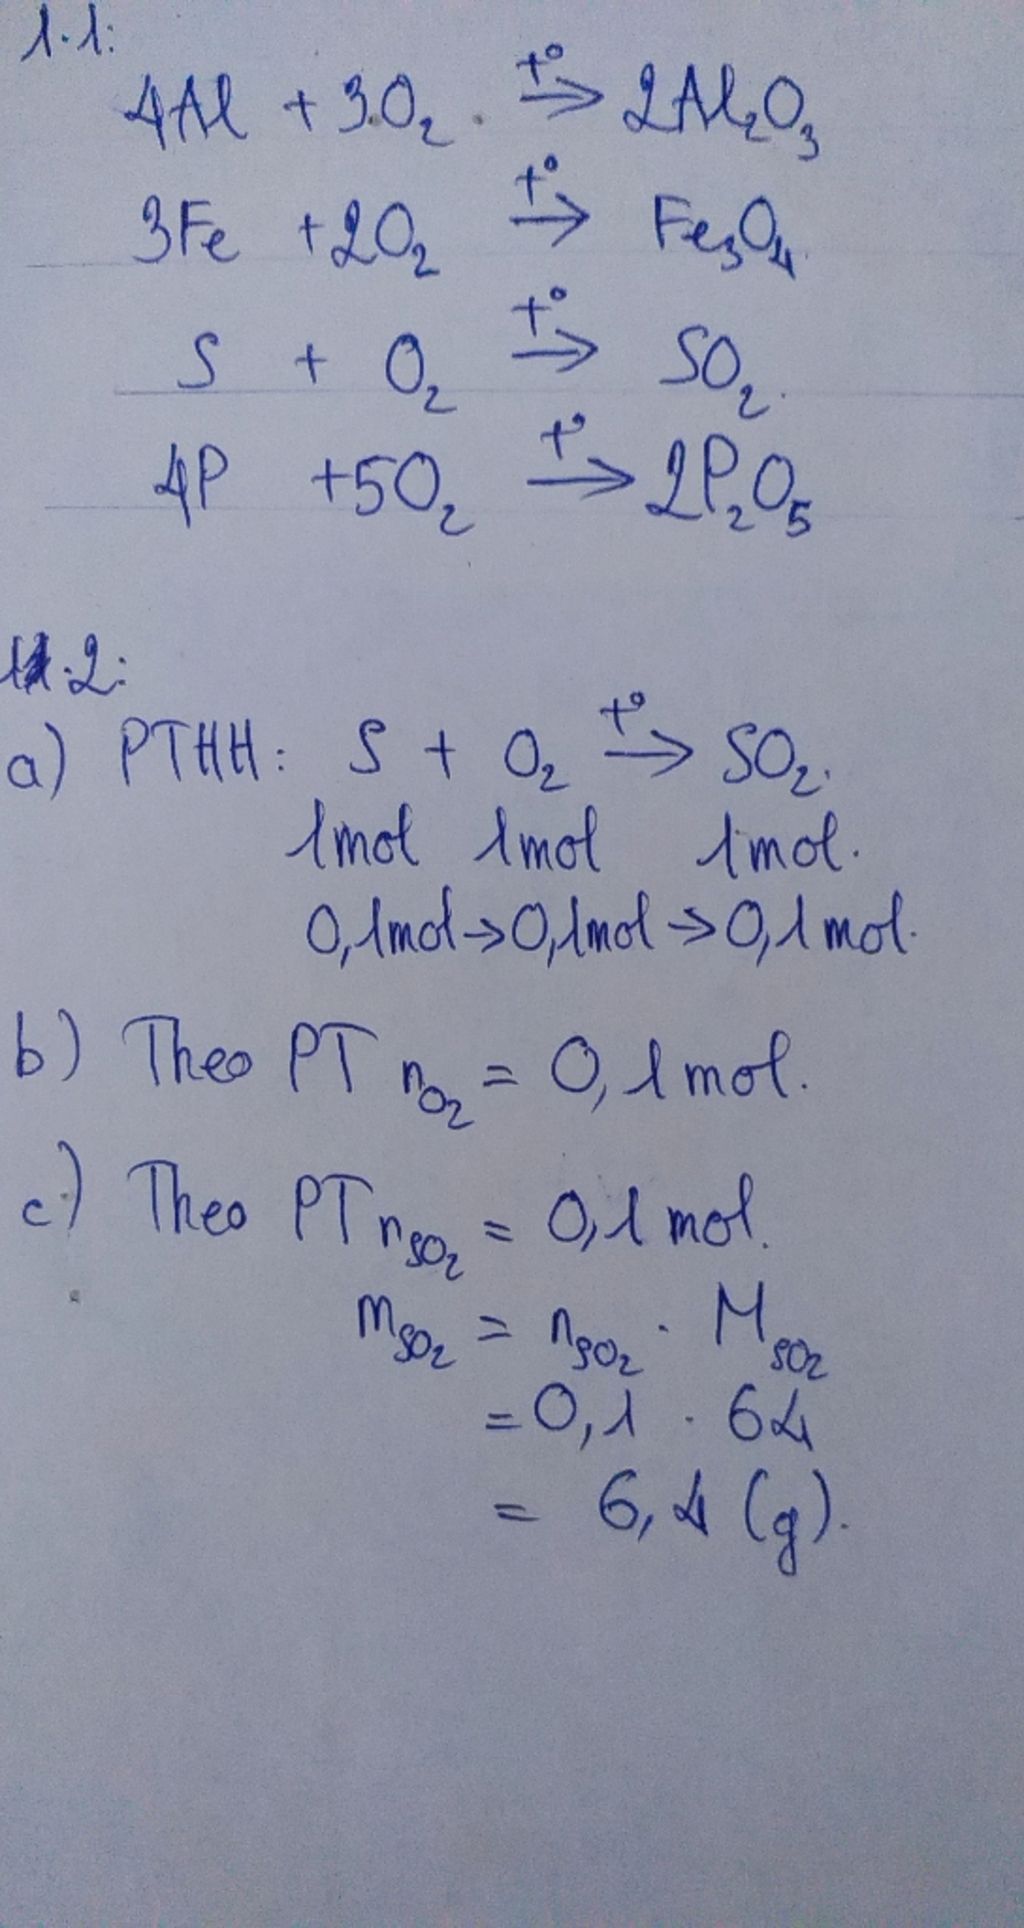 1.1:
4Al + 3O₂ →(t°) 2Al₂O₃
3Fe + 2O₂ →(t°) Fe₃O₄
S + O₂ →(t°) SO₂.
4P + 5O₂ →(t°) 2P₂O₅
1.2:
a) PTHH: S + O₂ →(t°) SO₂.
1mol 1mol 1mol.
0,1mol → 0,1mol → 0,1mol.
b) Theo PT n_O₂ = 0,1mol.
c) Theo PT n_SO₂ = 0,1mol.
m_SO₂ = n_SO₂ . M_SO₂
= 0,1 . 64
= 6,4 (g).